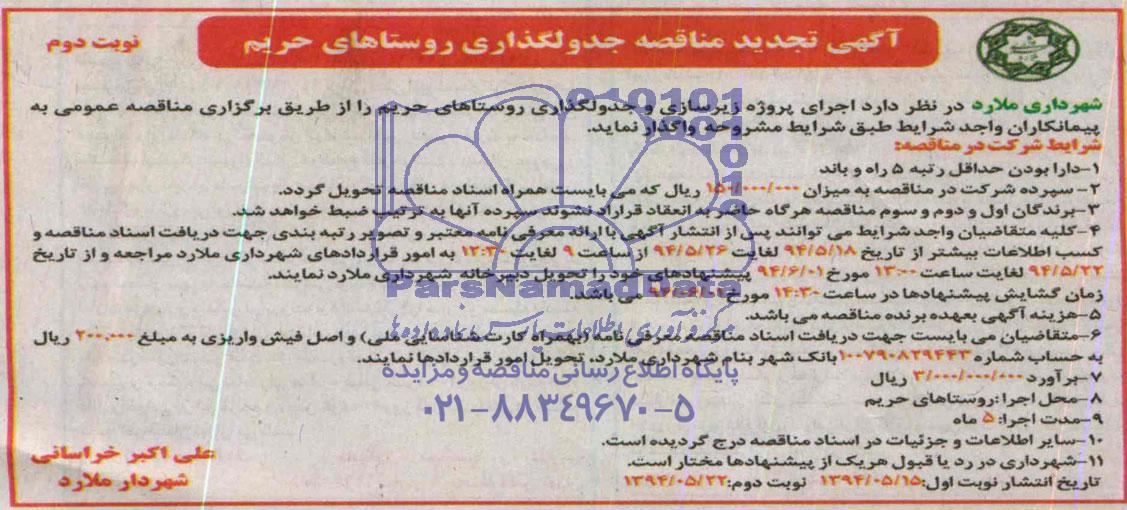 آگهی تجدید مناقصه جدولگذاری روستاهای حریم
نوبت دوم
شهرداری ملارد در نظر دارد اجرای پروژه زیرسازی و جدولگذاری روستاهای حریم را از طریق برگزاری مناقصه عمومی به
پیمانکاران واجد شرایط طبق شرایط مشروحه واگذار نماید.
شرایط شرکت در مناقصه:
۱-دارا بودن حداقل رتبه ۵ راه و باند
۲- سپرده شرکت در مناقصه به میزان ۱۵۰/۰۰۰/۰۰۰ ریال که می بایست همراه اسناد مناقصه تحویل گردد.
۳-برندگان اول و دوم و سوم مناقصه هرگاه حاضر به انعقاد قراراد نشوند سپرده آنها به ترتیب ضبط خواهد شد.
۴-کلیه متقاضیان واجد شرایط می توانند پس از انتشار آگهی با ارائه معرفی نامه معتبر و تصویر رتبه بندی جهت دریافت اسناد مناقصه و
کسب اطلاعات بیشتر از تاریخ ۹۴/۵/۱۸ لغایت ۹۴/۵/۲۶ از ساعت ۹ لغایت ۱۲:۳۰ به امور قراردادهای شهرداری ملارد مراجعه و از تاریخ
۹۴/۵/۲۲ لغایت ساعت ۱۳:۰۰ مورخ ۹۴/۶/۰۱ پیشنهادهای خود را تحویل دبیرخانه شهرداری ملارد نمایند.
زمان گشایش پیشنهادها در ساعت ۱۴:۳۰ مورخ ۹۴/۶/۰۱ می باشد.
۵-هزینه آگهی بعهده برنده مناقصه می باشد.
۶-متقاضیان می بایست جهت دریافت اسناد مناقصه معرفی نامه (بهمراه کارت شناسایی ملی) و اصل فیش واریزی به مبلغ ۲۰۰.۰۰۰ ریال
به حساب شماره ۱۰۰۷۹۰۸۲۹۴۴۳ بانک شهر بنام شهرداری ملارد، تحویل امور قراردادها نمایند.
۷-برآورد ۳/۰۰۰/۰۰۰/۰۰۰ ریال
۸-محل اجرا:روستاهای حریم
۹-مدت اجرا: ۵ ماه
۱۰-سایر اطلاعات و جزئیات در اسناد مناقصه درج گردیده است.
۱۱-شهرداری در رد یا قبول هریک از پیشنهادها مختار است.
تاریخ انتشار نوبت اول:۱۳۹۴/۰۵/۱۵ نوبت دوم:۱۳۹۴/۰۵/۲۲
علی اکبر خراسانی
شهردار ملارد
ParsNamadData
مرکز فرآوری اطلاعات پارس نماد داده ها
پایگاه اطلاع رسانی مناقصه و مزایده
۰۲۱-۸۸۳۴۹۶۷۰-۵